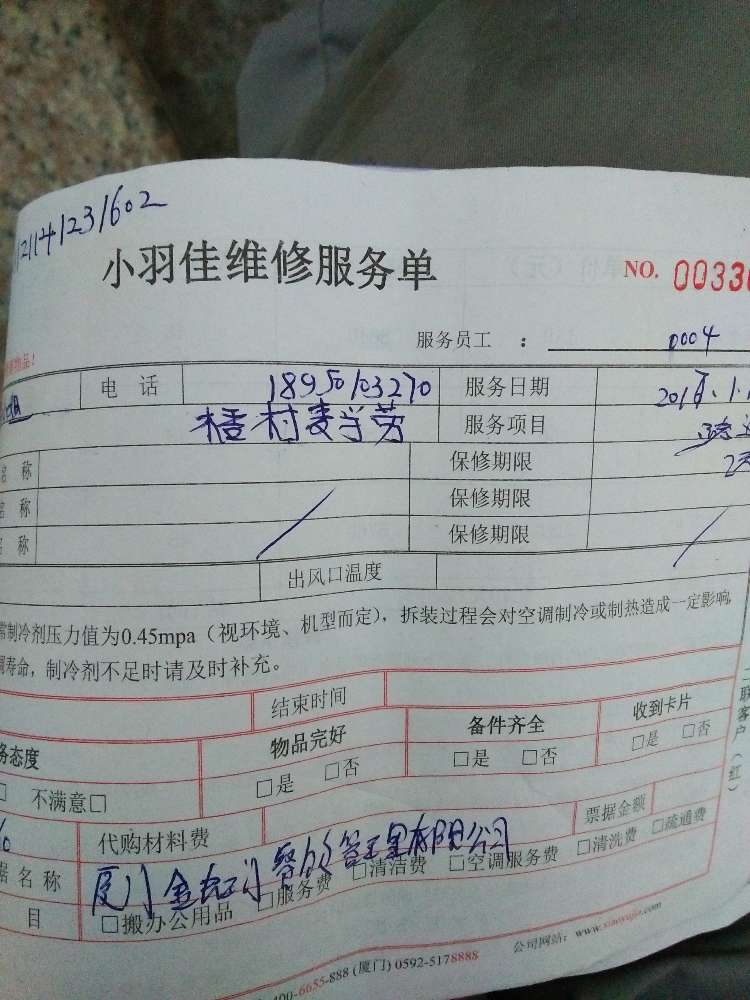 12114231602
小羽佳维修服务单 NO. 00330
服务员工 ： 0004
电 话 18950103270 服务日期
服务项目
名 称 保修期限
名 称 保修期限
名 称 保修期限
出风口温度
常制冷剂压力值为0.45mpa（视环境、机型而定），拆装过程会对空调制冷或制热造成一定影响，
寿命，制冷剂不足时请及时补充。
结束时间
务态度 物品完好 备件齐全 收到卡片
不满意□ □是 □否 □是 □否 □是 □否
代购材料费 票据金额
据名称
目 □搬办公用品 □服务费 □清洁费 □空调服务费 □清洗费 □疏通费
400-6655-888 (厦门) 0592-5178888 公司网站：www.xiaoyujia.com
二联客户（红）